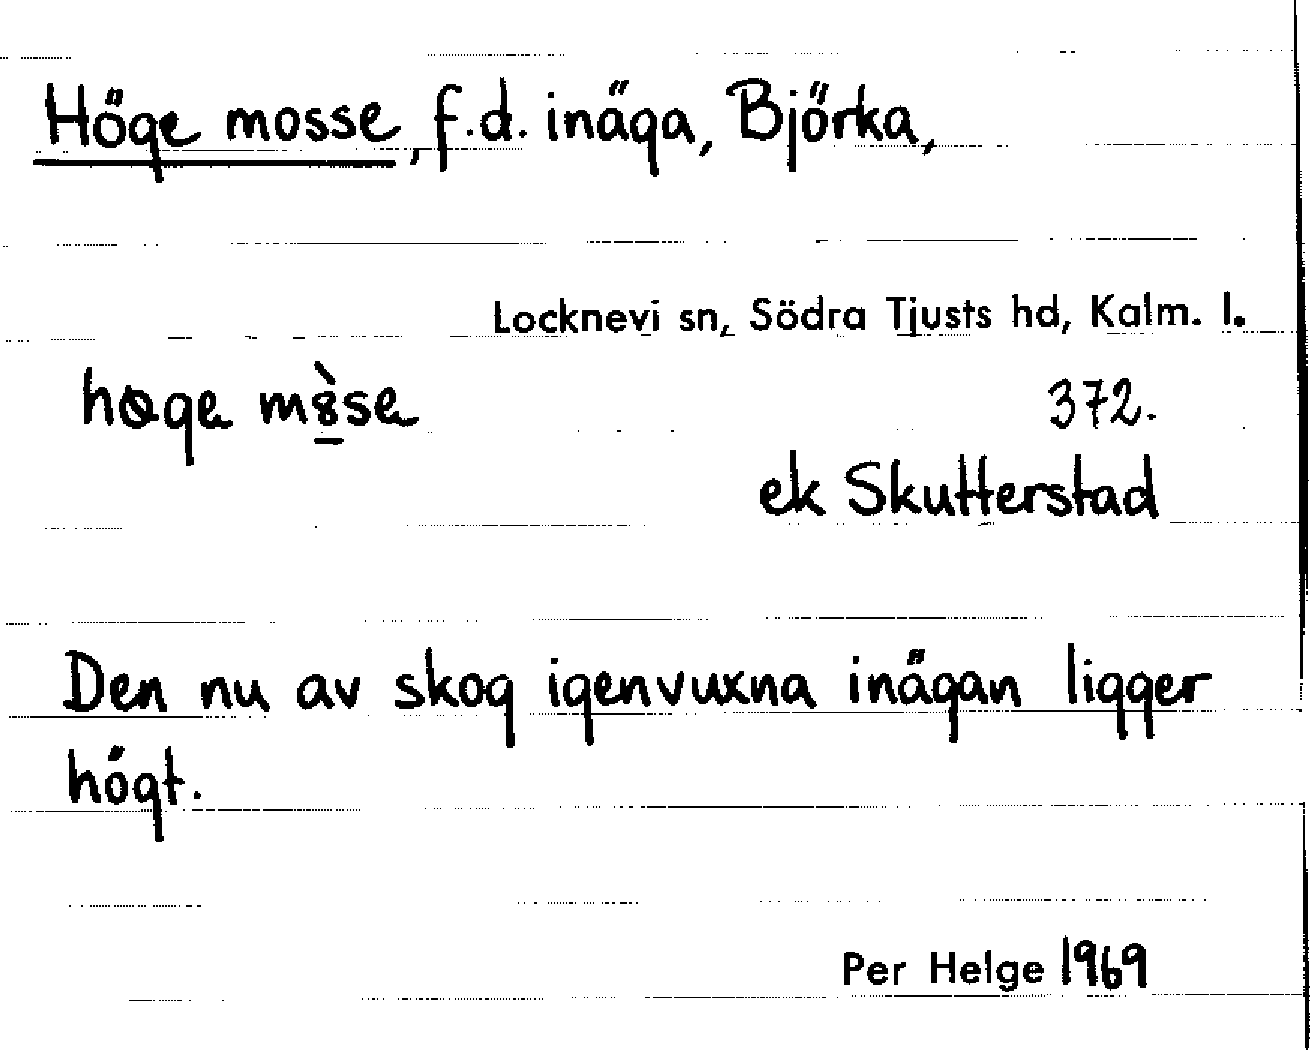 Höge mosse, f.d. inäga, Björka,
Locknevi sn, Södra Tjusts hd, Kalm. l.
høge
372.
ek Skutterstad
Den nu av skog igenvuxna inägan ligger
högt.
Per Helge 1969